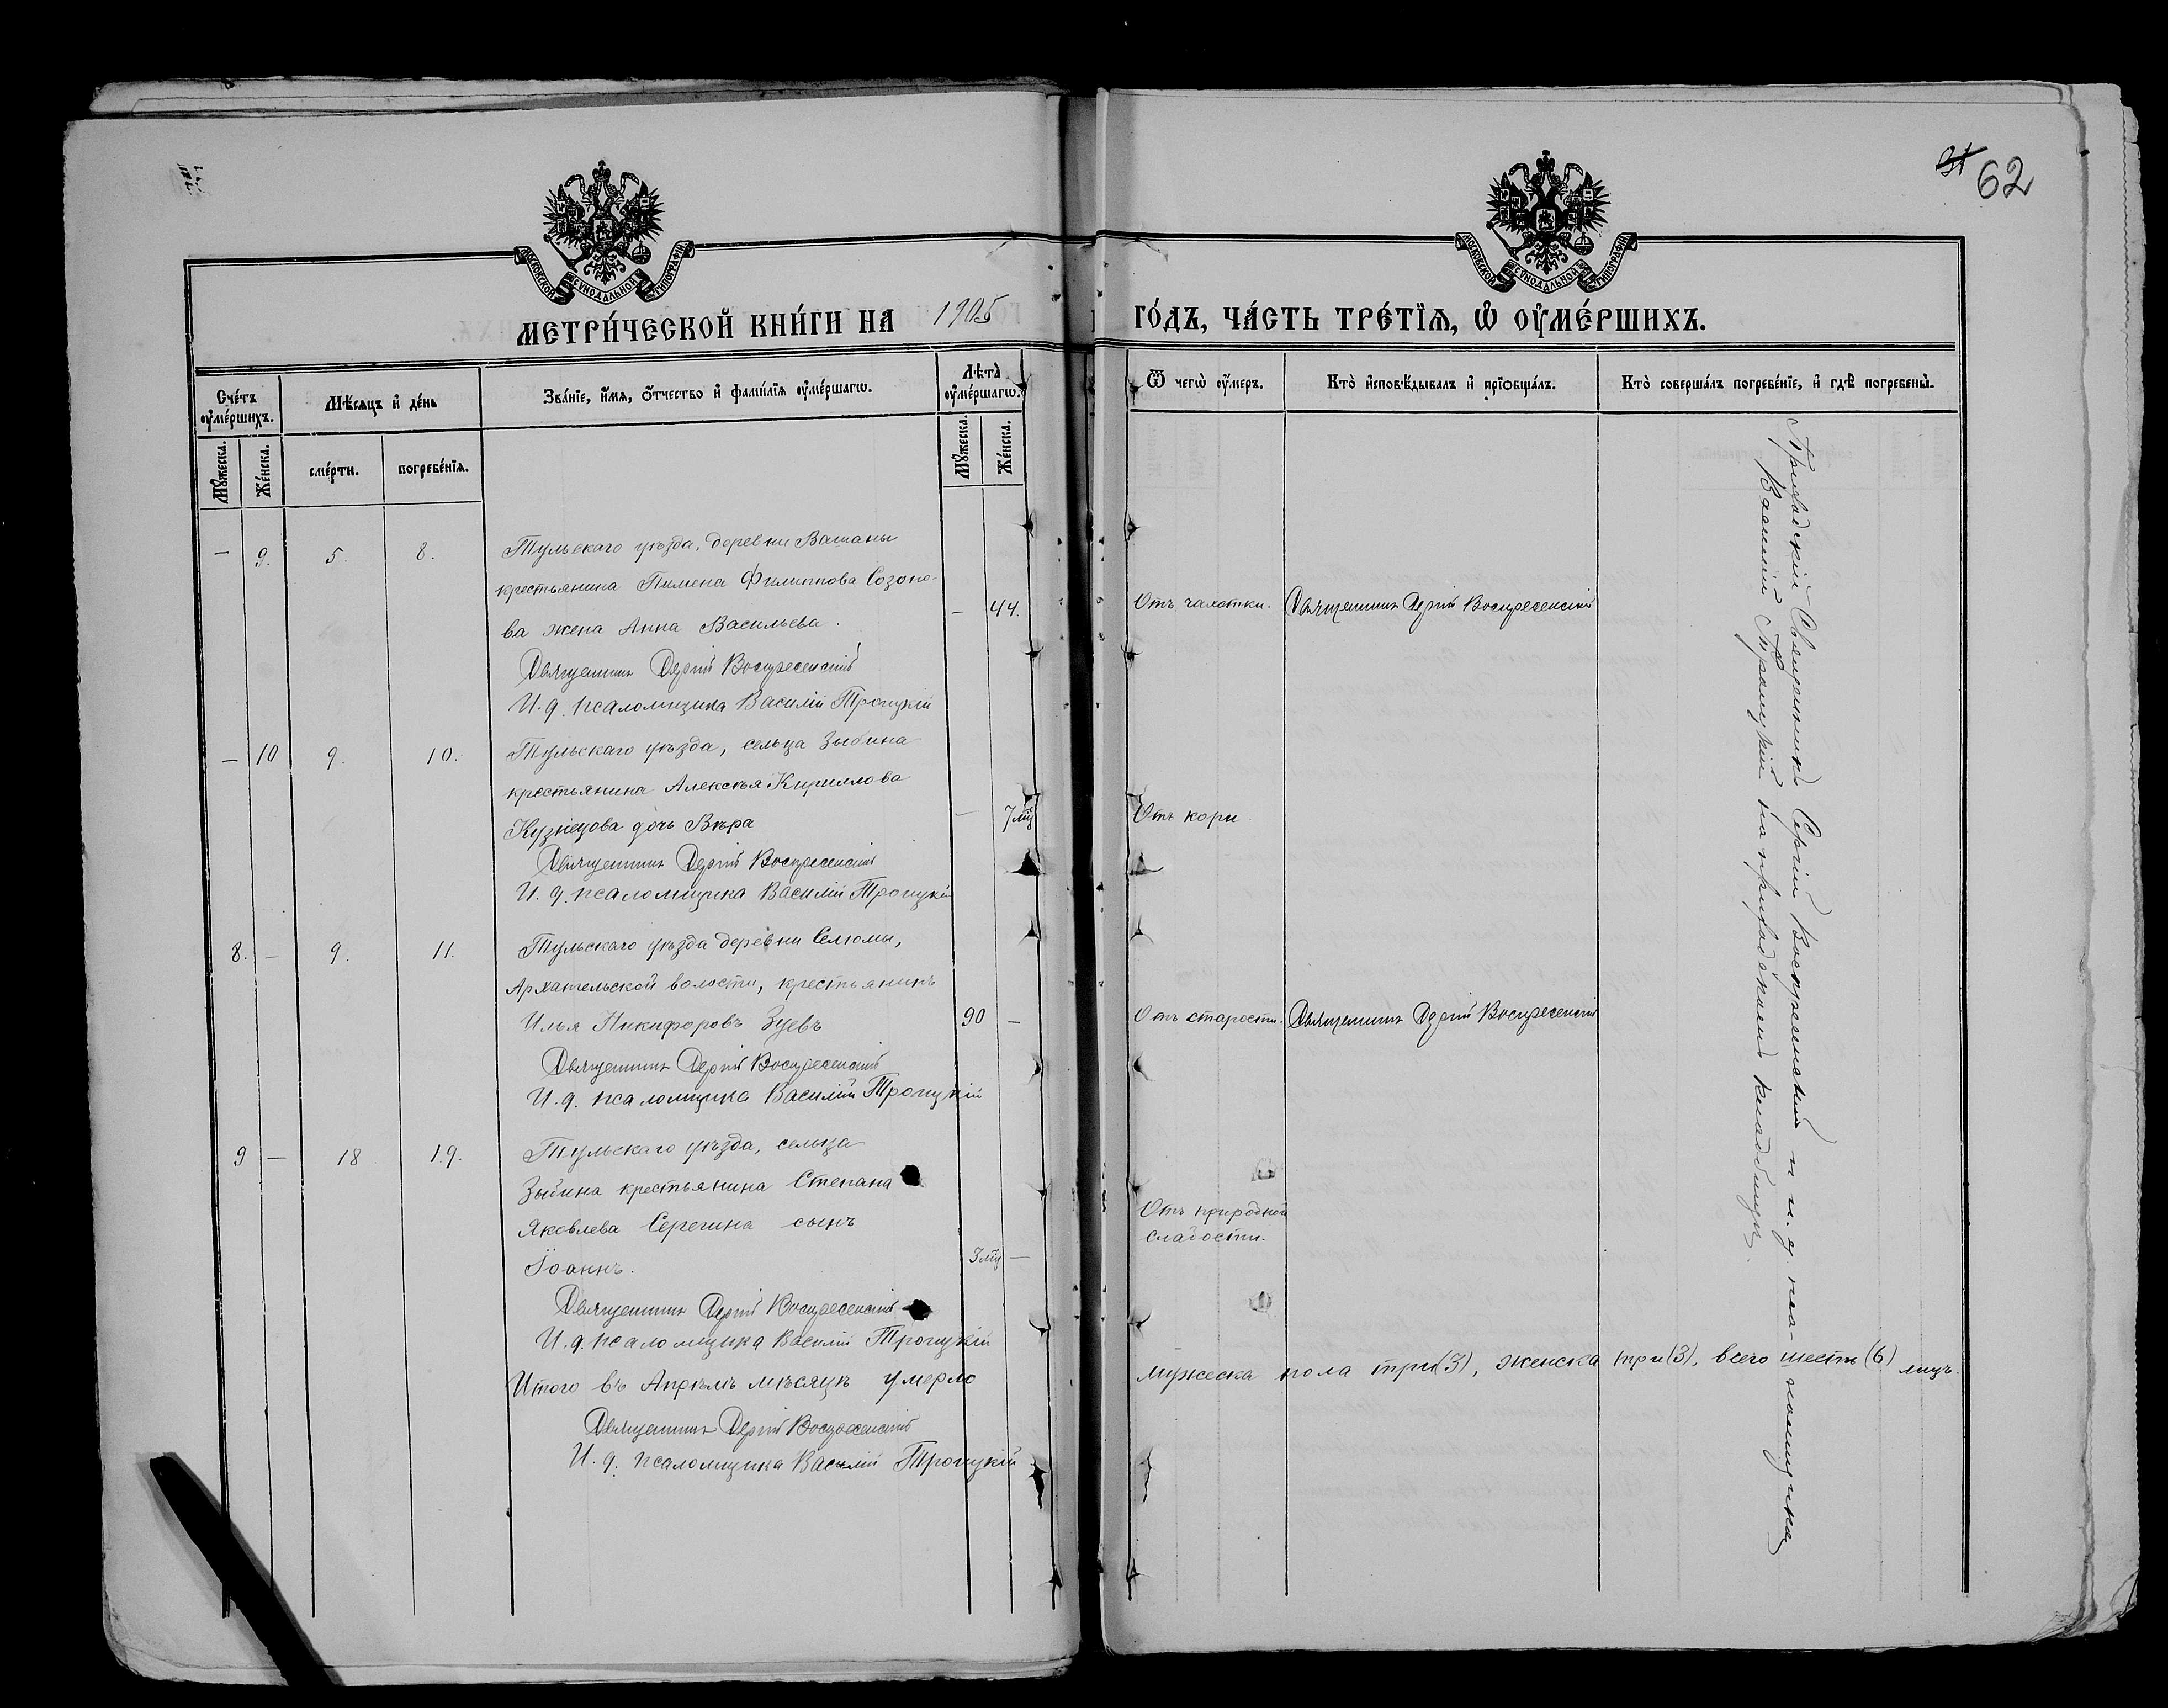 31 62
МОСКОВСКОЙ СѴНОДАЛЬНОЙ ТИПОГРАФІИ
МОСКОВСКОЙ СѴНОДАЛЬНОЙ ТИПОГРАФІИ
МЕТРИ́ЧЕСКОЙ КНИ́ГИ НА 1905 ГО́ДЪ, ЧА́СТЬ ТРЕ́ТІѦ, Ѡ҆ ОУ҆МЕ́РШИХЪ.
Сче́тъ оу҆ме́ршихъ.
Мꙋ́жеска.
Же́нска.
Мѣ́сѧцъ и҆ де́нь
сме́рти.
погребе́нїѧ.
Зва́нїе, и҆́мѧ, ѻ҆́тчество и҆ фами́лїѧ оу҆ме́ршагѡ.
Лѣ́та оу҆ме́ршагѡ.
Мꙋ́жеска.
Же́нска.
Ѿ чегѡ̀ оу҆́меръ.
Кто̀ и҆сповѣ́дывалъ и҆ прїѡбща́лъ.
Кто̀ соверша́лъ погребе́нїе, и҆ гдѣ̀ погребены̀.
— 9. 5. 8. Тульскаго уѣзда, деревни Вашаны
крестьянина Пимена Филиппова Созоно-
ва жена Анна Васильева. — 44. Отъ чахотки. Священникъ Сергій Воскресенскій
Священникъ Сергій Воскресенскій
И. д. псаломщика Василій Троицкій
— 10 9. 10. Тульскаго уѣзда, сельца Зыбина
крестьянина Алексѣя Кириллова
Кузнецова дочь Вѣра — 7 мц Отъ кори
Священникъ Сергій Воскресенскій
И. д. псаломщика Василій Троицкій
8. — 9. 11. Тульскаго уѣзда деревни Селюмы,
Архангельской волости, крестьянинъ
Илья Никифоровъ Зуевъ 90 — Отъ старости. Священникъ Сергій Воскресенскій
Священникъ Сергій Воскресенскій
И. д. псаломщика Василій Троицкій
9 — 18 19. Тульскаго уѣзда, сельца
Зыбина крестьянина Степана
Яковлева Серегина сынъ
Іоаннъ. 3 мц — Отъ природной
слабости.
Священникъ Сергій Воскресенскій
И. д. псаломщика Василій Троицкій
Итого въ Апрѣлѣ мѣсяцѣ умерло мужеска пола три (3), женска три (3), всего шесть (6) лицъ.
Священникъ Сергій Воскресенскій
И. д. псаломщика Василій Троицкій
Приходскій Священникъ Сергій Воскресенскій и и. д. псаломщика
Василій Троицкій на приходскомъ кладбищѣ